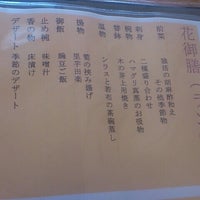 花御膳
前菜 独活の胡麻酢和え
その他季節物
刺身 二種盛り合わせ
椀物 ハマグリ真蒸のお吸物
替鉢 木の芽上用焼き
温物 シラスと若布の茶碗蒸し
揚物 筍の挟み揚げ
里芋田楽
御飯 豌豆ご飯
止め椀 味噌汁
香の物 床漬け
デザート 季節のデザート